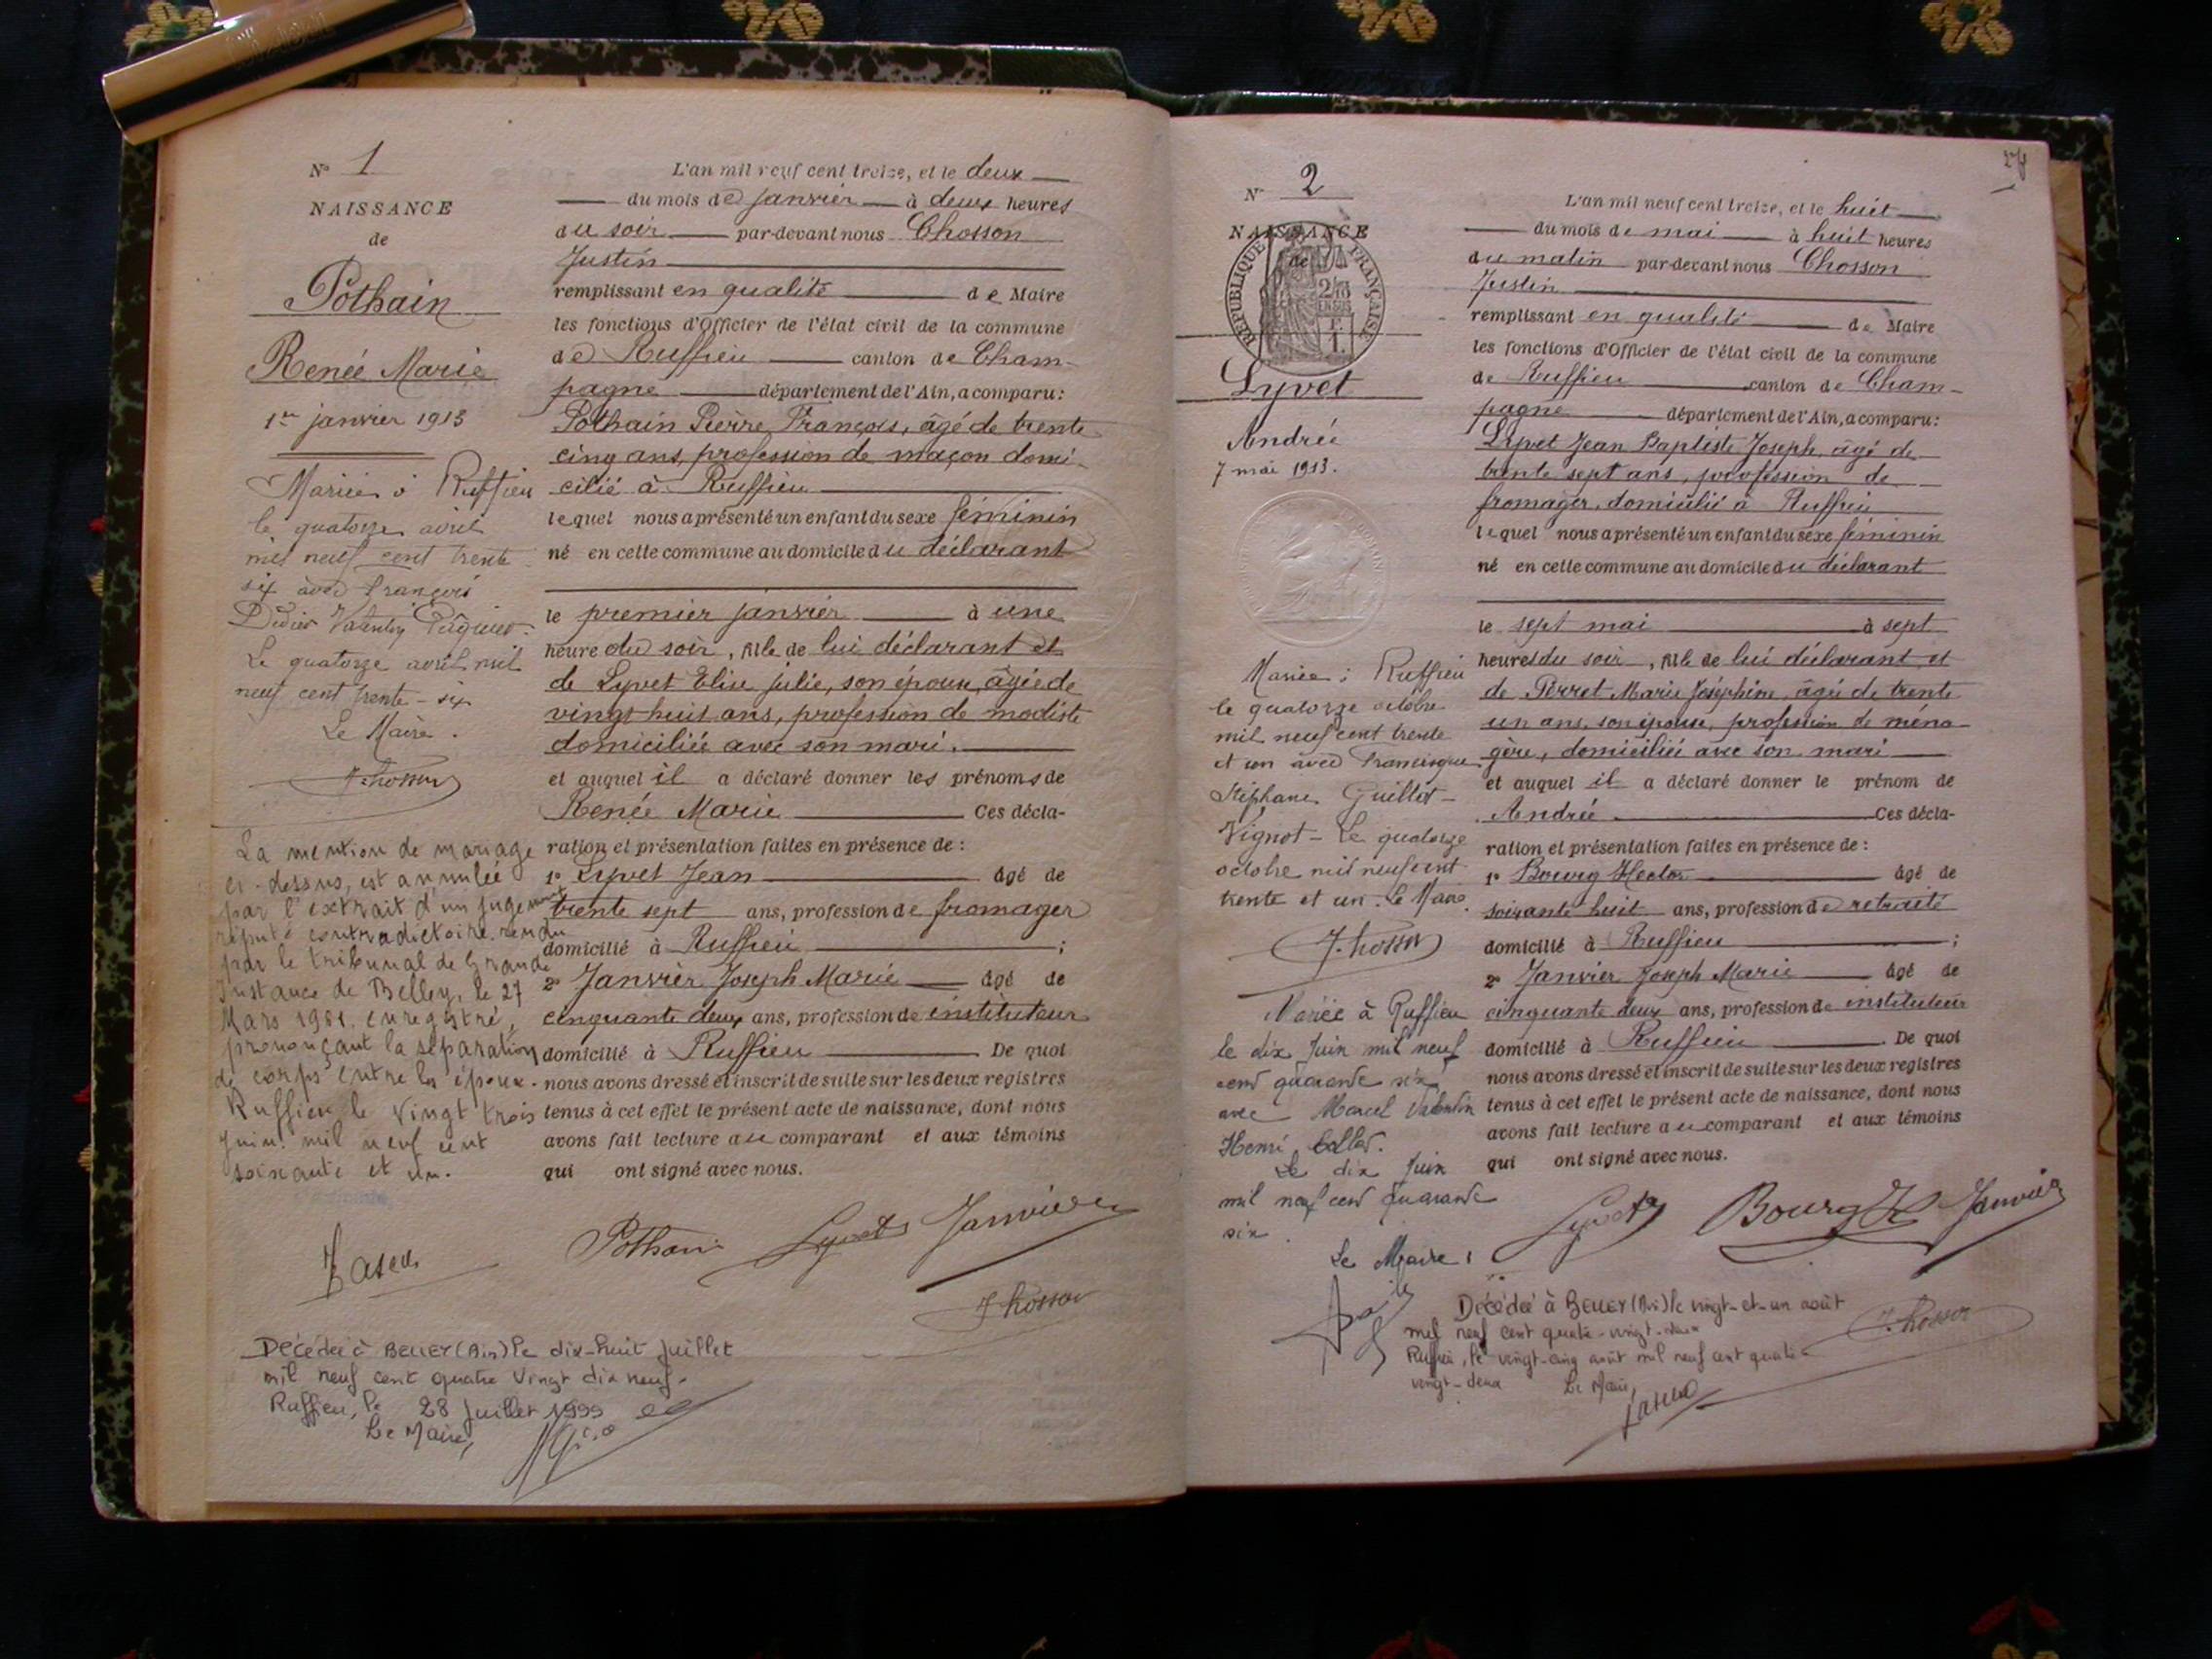 N° 1
NAISSANCE
de
Pothain
Renée Marie
1er janvier 1913
Mariée à Ruffieu
le quatorze avril
mil neuf cent trente
six avec François
Didier Valentin
Le quatorze avril mil
neuf cent trente-six
Le Maire.
J. Chosson
La mention de mariage
ci-dessus, est annulée
par l'extrait d'un jugement
réputé contradictoire rendu
par le tribunal de Grande
Instance de Belley, le 27
Mars 1961. enregistré,
prononçant la séparation
de corps entre les époux.
Ruffieu, le vingt trois
Juin mil neuf cent
soixante et un.
L'an mil neuf cent treize, et le deux
du mois de janvier à deux heures
du soir par-devant nous Chosson
Justin
remplissant en qualité de Maire
les fonctions d'Officier de l'état civil de la commune
de Ruffieu canton de Cham-
pagne département de l'Ain, a comparu:
Pothain Pierre François, âgé de trente
cinq ans, profession de maçon domi-
cilié à Ruffieu
lequel nous a présenté un enfant du sexe féminin
né en cette commune au domicile du déclarant
le premier janvier à une
heure du soir, fille de lui déclarant et
de Lyvet Elise Julie, son épouse, âgée de
vingt-huit ans, profession de modiste
domiciliée avec son mari.
et auquel il a déclaré donner les prénoms de
Renée Marie Ces décla-
ration et présentation faites en présence de :
1° Lyvet Jean âgé de
trente sept ans, profession de fromager
domicilié à Ruffieu ;
2° Janvier Joseph Marie âgé de
cinquante deux ans, profession de instituteur
domicilié à Ruffieu De quoi
nous avons dressé et inscrit de suite sur les deux registres
tenus à cet effet le présent acte de naissance, dont nous
avons fait lecture au comparant et aux témoins
qui ont signé avec nous.
Pothain Lyvet Janvier
J. Chosson
Décédée à BELLEY (Ain) le dix-huit juillet
mil neuf cent quatre vingt dix neuf.
Ruffieu, le 28 juillet 1999
Le Maire,
24
N° 2
NAISSANCE
de
REPUBLIQUE FRANÇAISE
Lyvet
Andrée
7 mai 1913.
Mariée à Ruffieu
le quatorze octobre
mil neuf cent trente
et un avec Francisque
Stéphane Guillot-
Vignot - Le quatorze
octobre mil neuf cent
trente et un. Le Maire.
J. Chosson
Mariée à Ruffieu
le dix Juin mil neuf
cent quarante six
avec Marcel Valentin
Henri
Le dix Juin
mil neuf cent quarante
six.
Le Maire :
L'an mil neuf cent treize, et le huit
du mois de mai à huit heures
du matin par-devant nous Chosson
Justin
remplissant en qualité de Maire
les fonctions d'Officier de l'état civil de la commune
de Ruffieu canton de Cham-
pagne département de l'Ain, a comparu:
Lyvet Jean Baptiste Joseph, âgé de
trente sept ans, profession de
fromager, domicilié à Ruffieu
lequel nous a présenté un enfant du sexe féminin
né en cette commune au domicile du déclarant
le sept mai à sept
heures du soir, fille de lui déclarant et
de Perret Marie Joséphine, âgée de trente
un ans, son épouse, profession de ména-
gère, domiciliée avec son mari
et auquel il a déclaré donner le prénom de
Andrée Ces décla-
ration et présentation faites en présence de :
1° Bourg Hector âgé de
soixante huit ans, profession de retraité
domicilié à Ruffieu ;
2° Janvier Joseph Marie âgé de
cinquante deux ans, profession de instituteur
domicilié à Ruffieu. De quoi
nous avons dressé et inscrit de suite sur les deux registres
tenus à cet effet le présent acte de naissance, dont nous
avons fait lecture au comparant et aux témoins
qui ont signé avec nous.
Lyvet Bourg H Janvier
J. Chosson
Décédée à BELLEY (Ain) le vingt-et-un août
mil neuf cent quatre-vingt-deux
Ruffieu, le vingt-cinq août mil neuf cent quatre-
vingt-deux Le Maire,